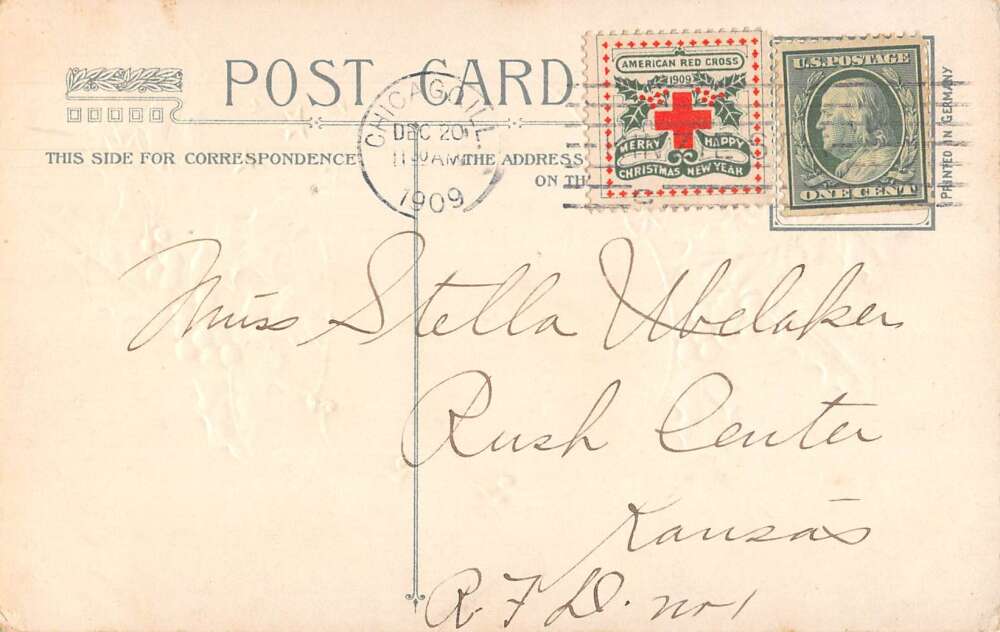 POST CARD
THIS SIDE FOR CORRESPONDENCE
THE ADDRESS
ON TH
CHICAGO, ILL.
DEC 20
11 30 AM
1909
AMERICAN RED CROSS
1909
MERRY HAPPY
CHRISTMAS NEW YEAR
U.S. POSTAGE
ONE CENT
PRINTED IN GERMANY
Miss Stella Ubelaker
Rush Center
Kansas
R. F. D. no 1